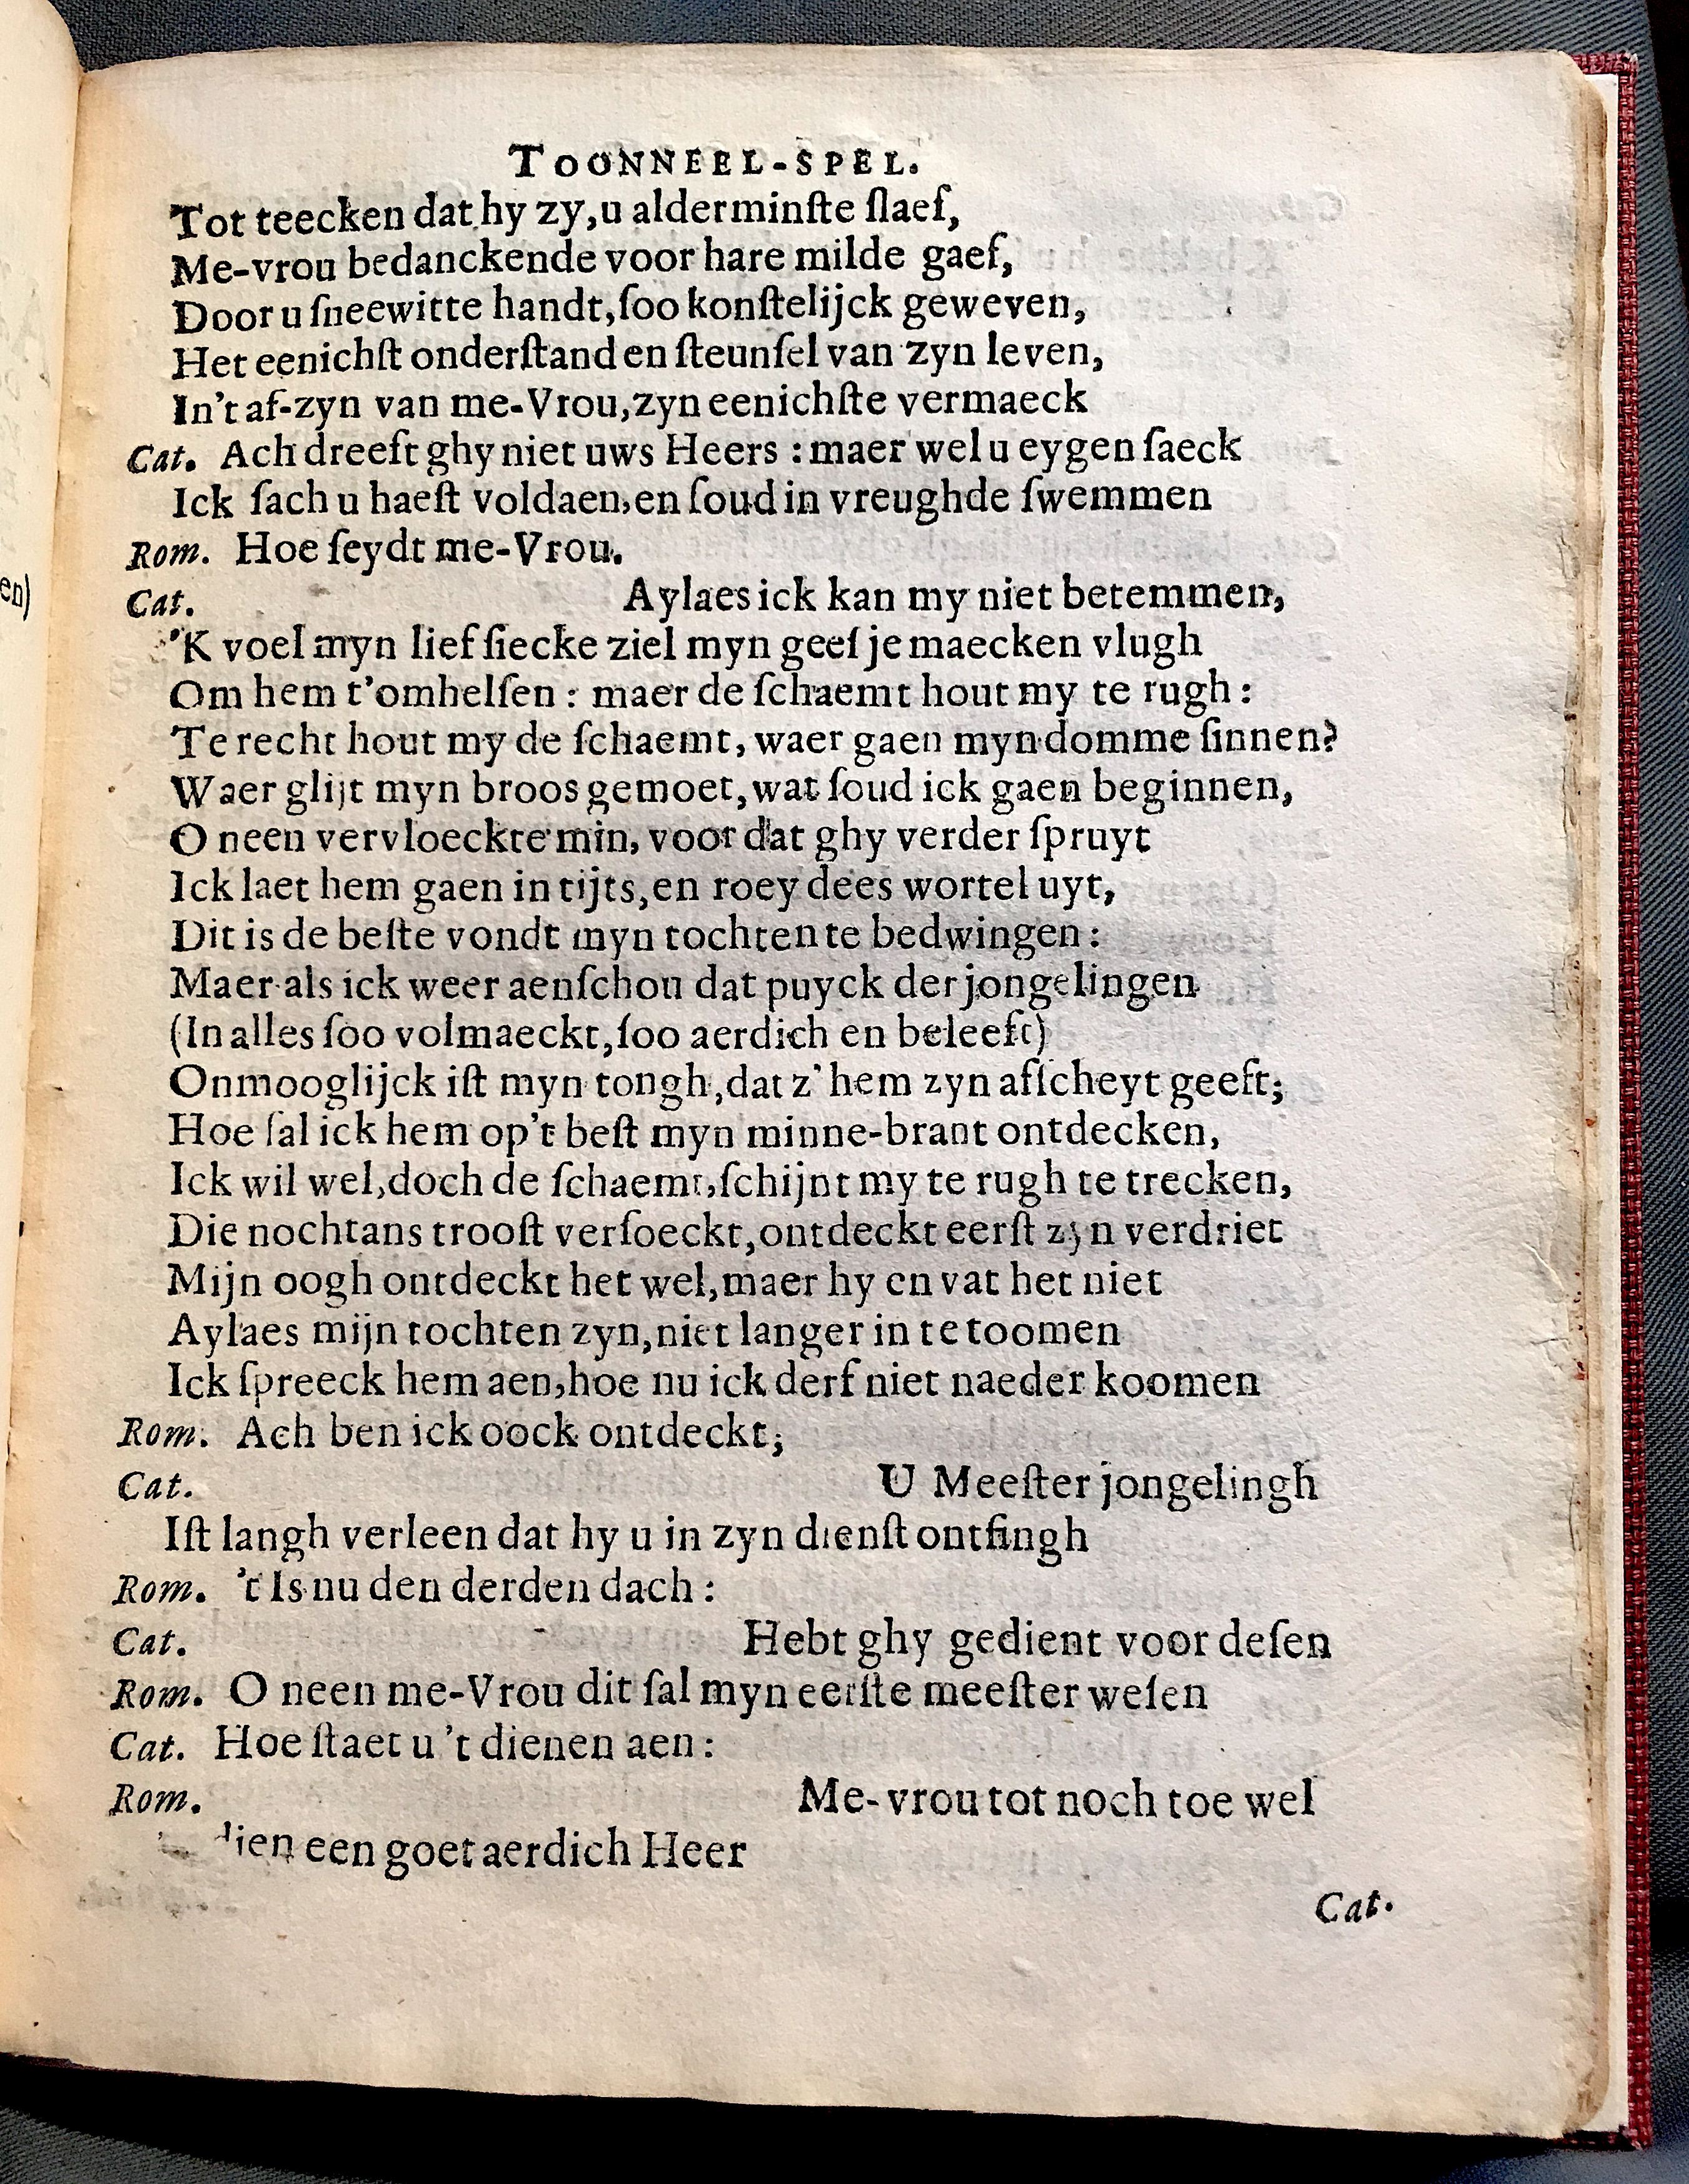 en)
TOONNEEL-SPEL.
Tot teecken dat hy zy, u alderminſte ſlaef,
Me-vrou bedanckende voor hare milde gaef,
Door u ſneewitte handt, ſoo konſtelijck geweven,
Het eenichſt onderſtand en ſteunſel van zyn leven,
In't af-zyn van me-Vrou, zyn eenichſte vermaeck
Cat. Ach dreeft ghy niet uws Heers : maer wel u eygen ſaeck
Ick ſach u haeſt voldaen, en ſoud in vreughde ſwemmen
Rom. Hoe ſeydt me-Vrou.
Cat. Aylaes ick kan my niet betemmen,
'K voel myn lief ſiecke ziel myn geeſje maecken vlugh
Om hem t'omhelſen : maer de ſchaemt hout my te rugh :
Te recht hout my de ſchaemt, waer gaen myn domme ſinnen?
Waer glijt myn broos gemoet, wat ſoud ick gaen beginnen,
O neen vervloeckte min, voor dat ghy verder ſpruyt
Ick laet hem gaen in tijts, en roey dees wortel uyt,
Dit is de beſte vondt myn tochten te bedwingen :
Maer als ick weer aenſchou dat puyck der jongelingen
(In alles ſoo volmaeckt, ſoo aerdich en beleeft)
Onmooglijck iſt myn tongh, dat z'hem zyn afſcheyt geeft;
Hoe ſal ick hem op't beſt myn minne-brant ontdecken,
Ick wil wel, doch de ſchaemt, ſchijnt my te rugh te trecken,
Die nochtans trooſt verſoeckt, ontdeckt eerſt zyn verdriet
Mijn oogh ontdeckt het wel, maer hy en vat het niet
Aylaes mijn tochten zyn, niet langer in te toomen
Ick ſpreeck hem aen, hoe nu ick derf niet naeder koomen
Rom. Ach ben ick oock ontdeckt;
Cat. U Meeſter jongelingh
Iſt langh verleen dat hy u in zyn dienſt ontfingh
Rom. 't Is nu den derden dach :
Cat. Hebt ghy gedient voor deſen
Rom. O neen me-Vrou dit ſal myn eerſte meeſter weſen
Cat. Hoe ſtaet u 't dienen aen :
Rom. Me-vrou tot noch toe wel
dien een goet aerdich Heer
Cat.